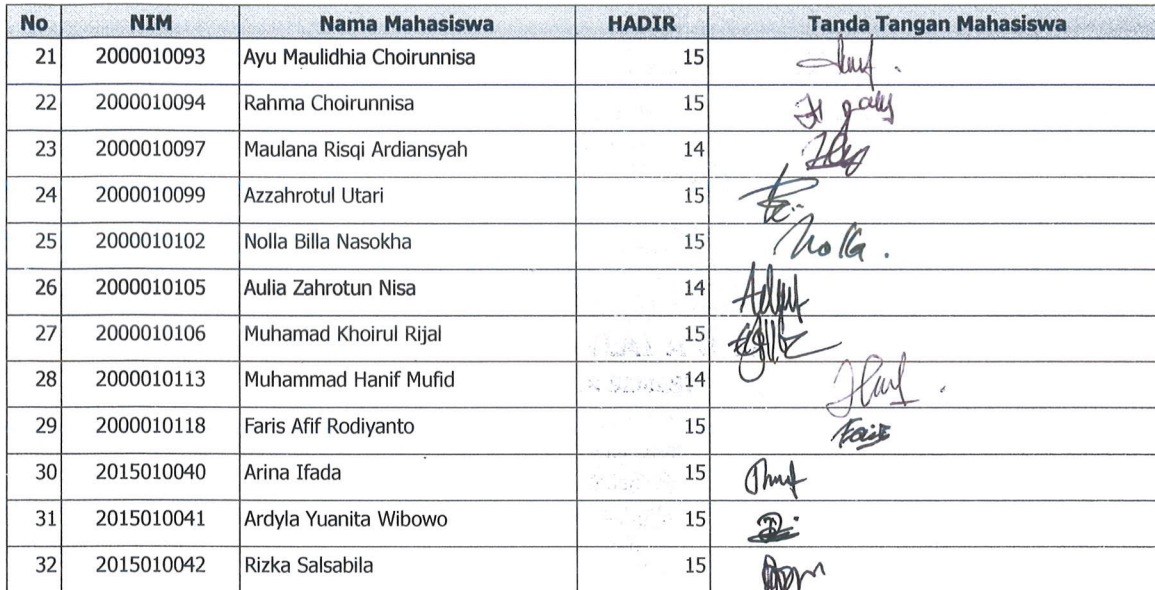 No NIM Nama Mahasiswa HADIR Tanda Tangan Mahasiswa
21 2000010093 Ayu Maulidhia Choirunnisa 15
22 2000010094 Rahma Choirunnisa 15
23 2000010097 Maulana Risqi Ardiansyah 14
24 2000010099 Azzahrotul Utari 15
25 2000010102 Nolla Billa Nasokha 15 Nolla.
26 2000010105 Aulia Zahrotun Nisa 14
27 2000010106 Muhamad Khoirul Rijal 15
28 2000010113 Muhammad Hanif Mufid 14
29 2000010118 Faris Afif Rodiyanto 15
30 2015010040 Arina Ifada 15
31 2015010041 Ardyla Yuanita Wibowo 15
32 2015010042 Rizka Salsabila 15